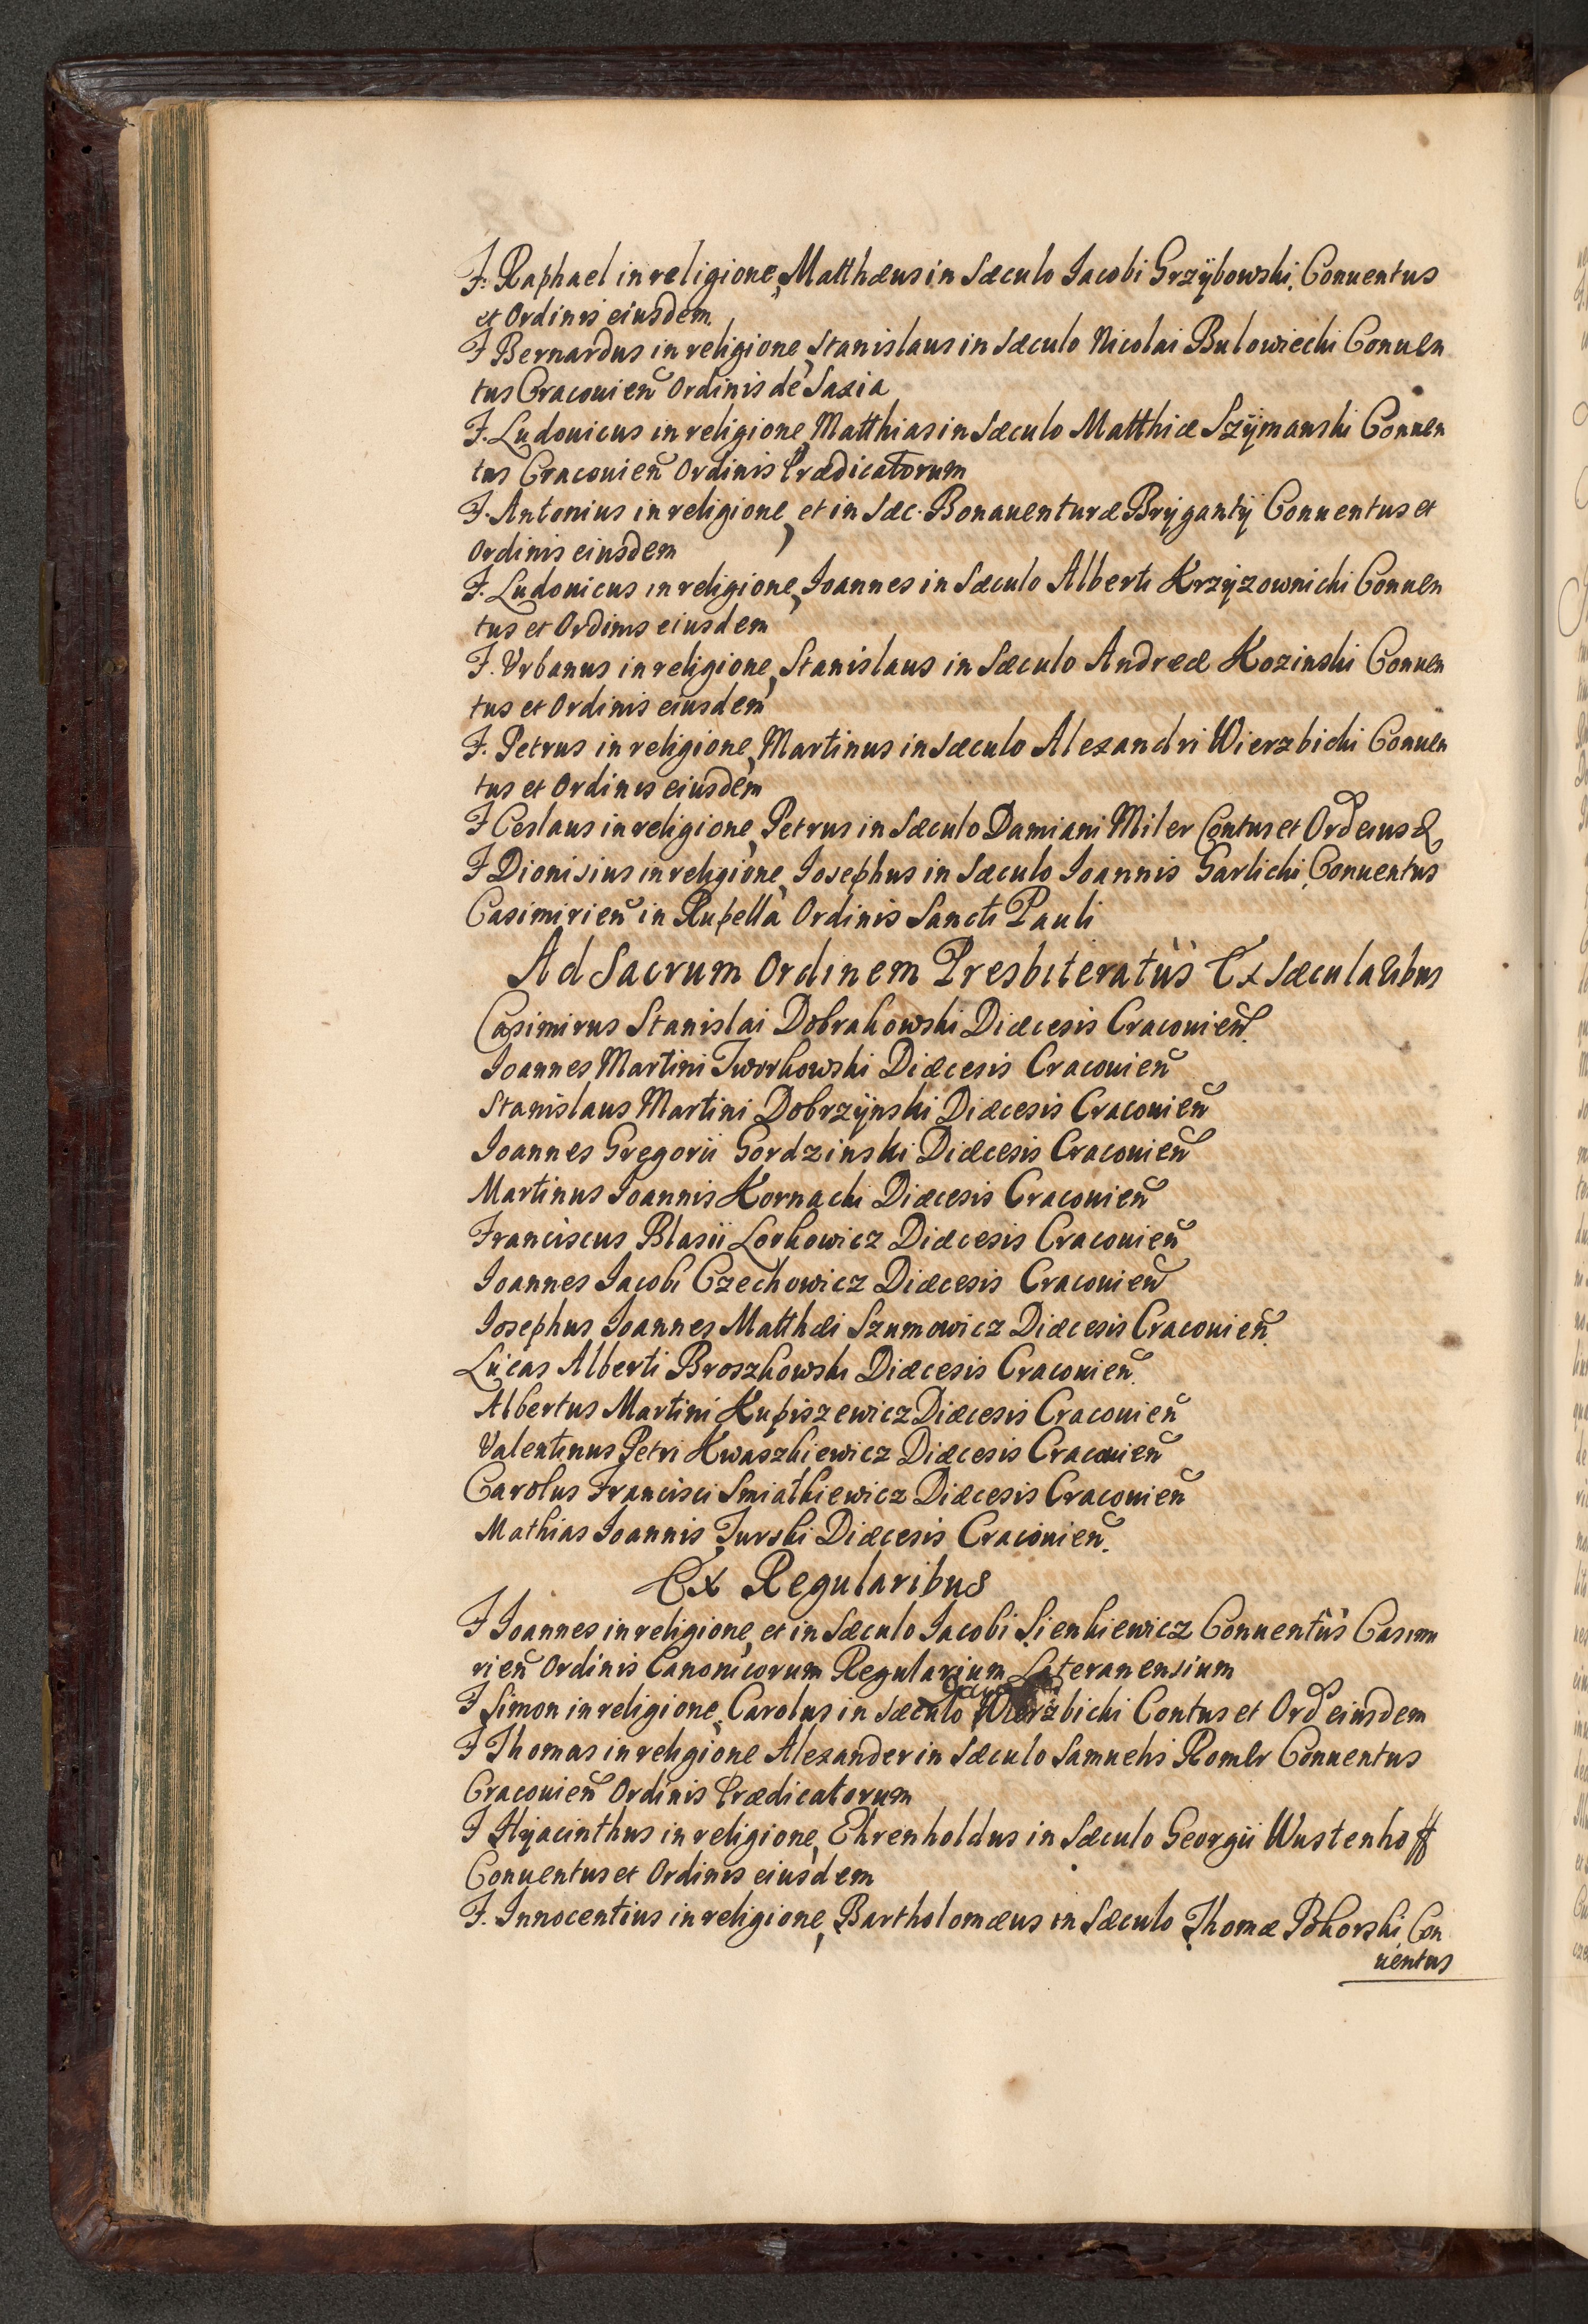 F. Raphael in religione, Matthæus in Sæculo Iacobi Grzÿbowski, Conuentus
et Ordinis eiusdem.
F Bernardus in religione, Stanislaus in Sæculo Nicolai Bulowiecki Conuen
tus Cracouien̄ Ordinis de Saxia
F. Ludouicus in religione, Matthias in Sæculo Matthiæ Szÿmanski Conuen
tus Cracouien̄ Ordinis Prædicatorum
F. Antonius in religione, et in Sæc. Bonauenturæ Brÿgantÿ Conuentus et
Ordinis eiusdem
F. Ludouicus in religione, Ioannes in Sæculo Alberti Krzÿzownicki Conuen
tus et Ordinis eiusdem
F. Vrbanus in religione, Stanislaus in Sæculo Andreæ Kozinski Conuen
tus et Ordinis eiusdem
F. Petrus in religione, Martinus in Sæculo Alexandri Wierzbicki Conuen
tus et Ordinis eiusdem
F Ceslaus in religione, Petrus in Sæculo Damiani Miler Contus et Ord eius d
F Dionisius in religione, Iosephus in Sæculo Ioannis Garlicki, Conuentus
Casimirien̄ in Rupella Ordinis Sancti Pauli
Ad Sacrum Ordinem Presbiteratûs Ex Sæcularibus
Casimirus Stanislai Dobrakowski Diæcesis Cracouien̄.
Ioannes Martini Tworkowski Diæcesis Cracouien̄
Stanislaus Martini Dobrzÿnski Diæcesis Cracouien̄
Ioannes Gregorii Gordzinski Diæcesis Cracouien̄
Martinus Ioannis Kornacki Diæcesis Cracouien̄
Franciscus Blasii Lorkowicz Diæcesis Cracouien̄
Ioannes Iacobi Czechowicz Diæcesis Cracouien̄
Iosephus Ioannes Matthæi Szumowicz Diæcesis Cracouien̄.
Lucas Alberti Broszkowski Diæcesis Cracouien̄.
Albertus Martini Kupiszewicz Diæcesis Cracouien̄
Valentinus Petri Kwaszkiewicz Diæcesis Cracouien̄
Carolus Francisci Smiatkiewicz Diæcesis Cracouien̄
Mathias Ioannis Turski Diæcesis Cracouien̄.
Ex Regularibus
F Ioannes in religione, et in Sæculo Iacobi Sienkiewicz Conuentûs Casimi
rien̄ Ordinis Canonicorum Regularium Lateranensium
F Simon in religione, Carolus in Sæculo Wierzbicki Contus et Ord eiusdem
F Thomas in religione Alexander in Sæculo Samuelis Romer Conuentus
Cracouien̄ Ordinis Prædicatorum
F Hÿacinthus in religione, Ehrenholdus in Sæculo Georgii Wustenhoff
Conuentus et Ordinis eiusdem
F. Innocentius in religione, Bartholomæus in Sæculo Thomæ Pokorski, Con
uentus